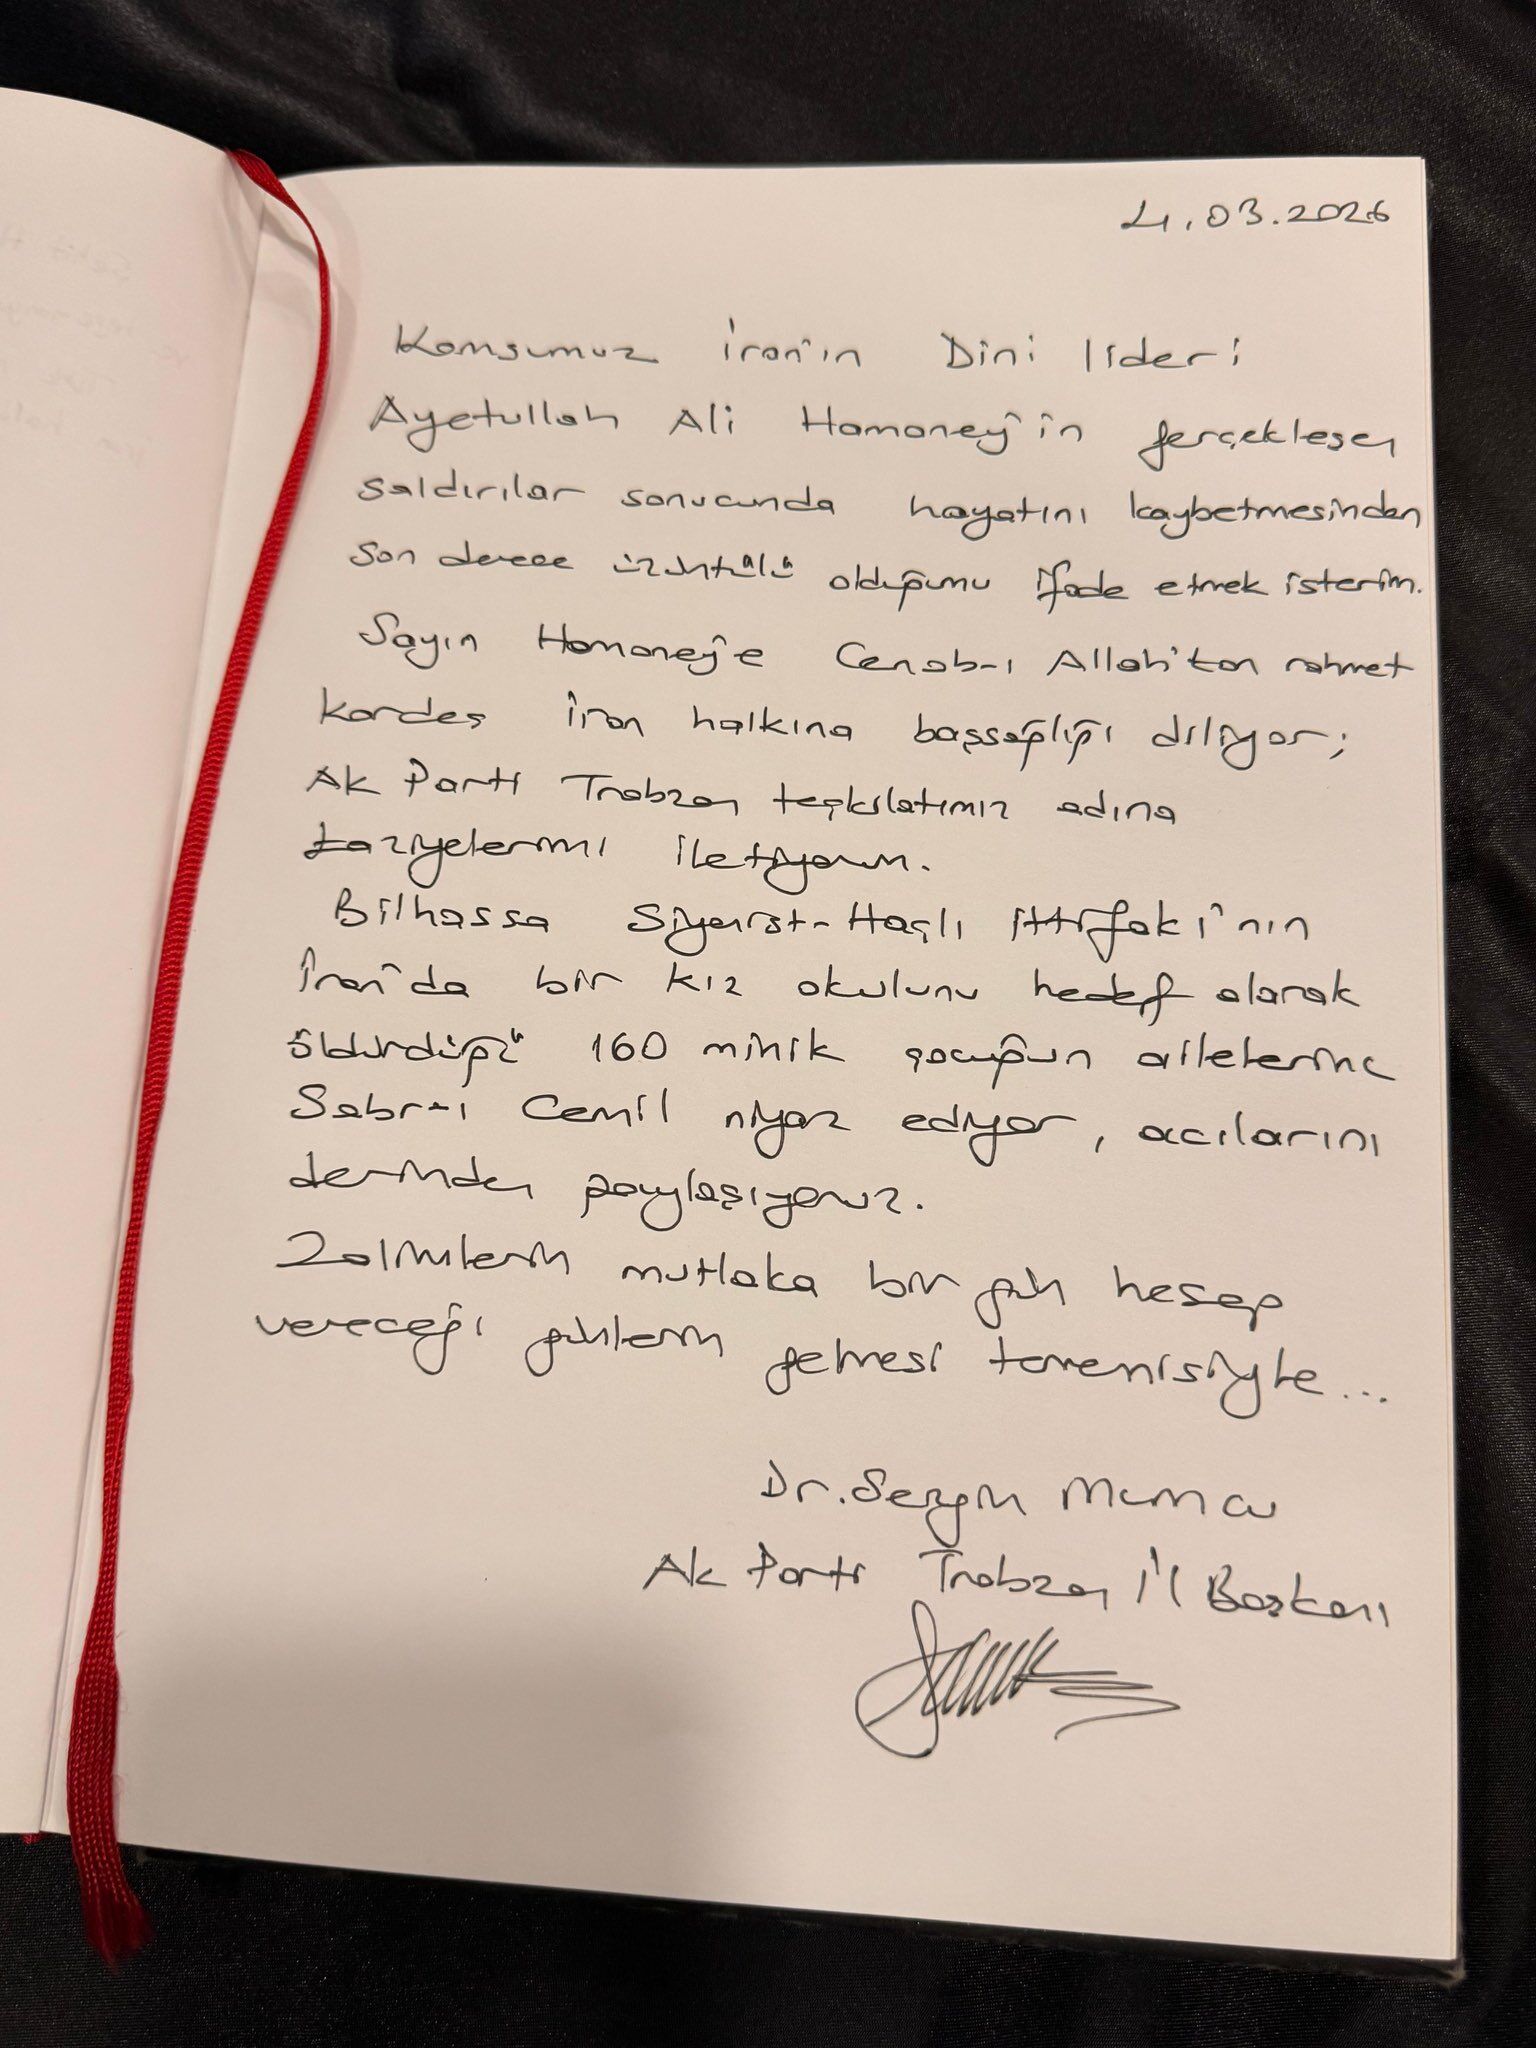 4.03.2026
Komşumuz İran'ın Dini lideri
Ayetullah Ali Hamaney'in gerçekleşen
saldırılar sonucunda hayatını kaybetmesinden
son derece üzüntülü olduğumu ifade etmek isterim.
Sayın Hamaney'e Cenab-ı Allah'tan rahmet
kardeş İran halkına başsağlığı diliyor;
Ak Parti Trabzon teşkilatımız adına
taziyelerimi iletiyorum.
Bilhassa Siyonist-Haçlı ittifakı'nın
İran'da bir kız okulunu hedef alarak
öldürdüğü 160 minik çocuğun ailelerine
Sabr-ı Cemil niyaz ediyor, acılarını
derinden paylaşıyoruz.
Zalimlerin mutlaka bir gün hesap
vereceği günlerin gelmesi temennisiyle...
Dr. Sezgin Mumcu
Ak Parti Trabzon İl Başkanı